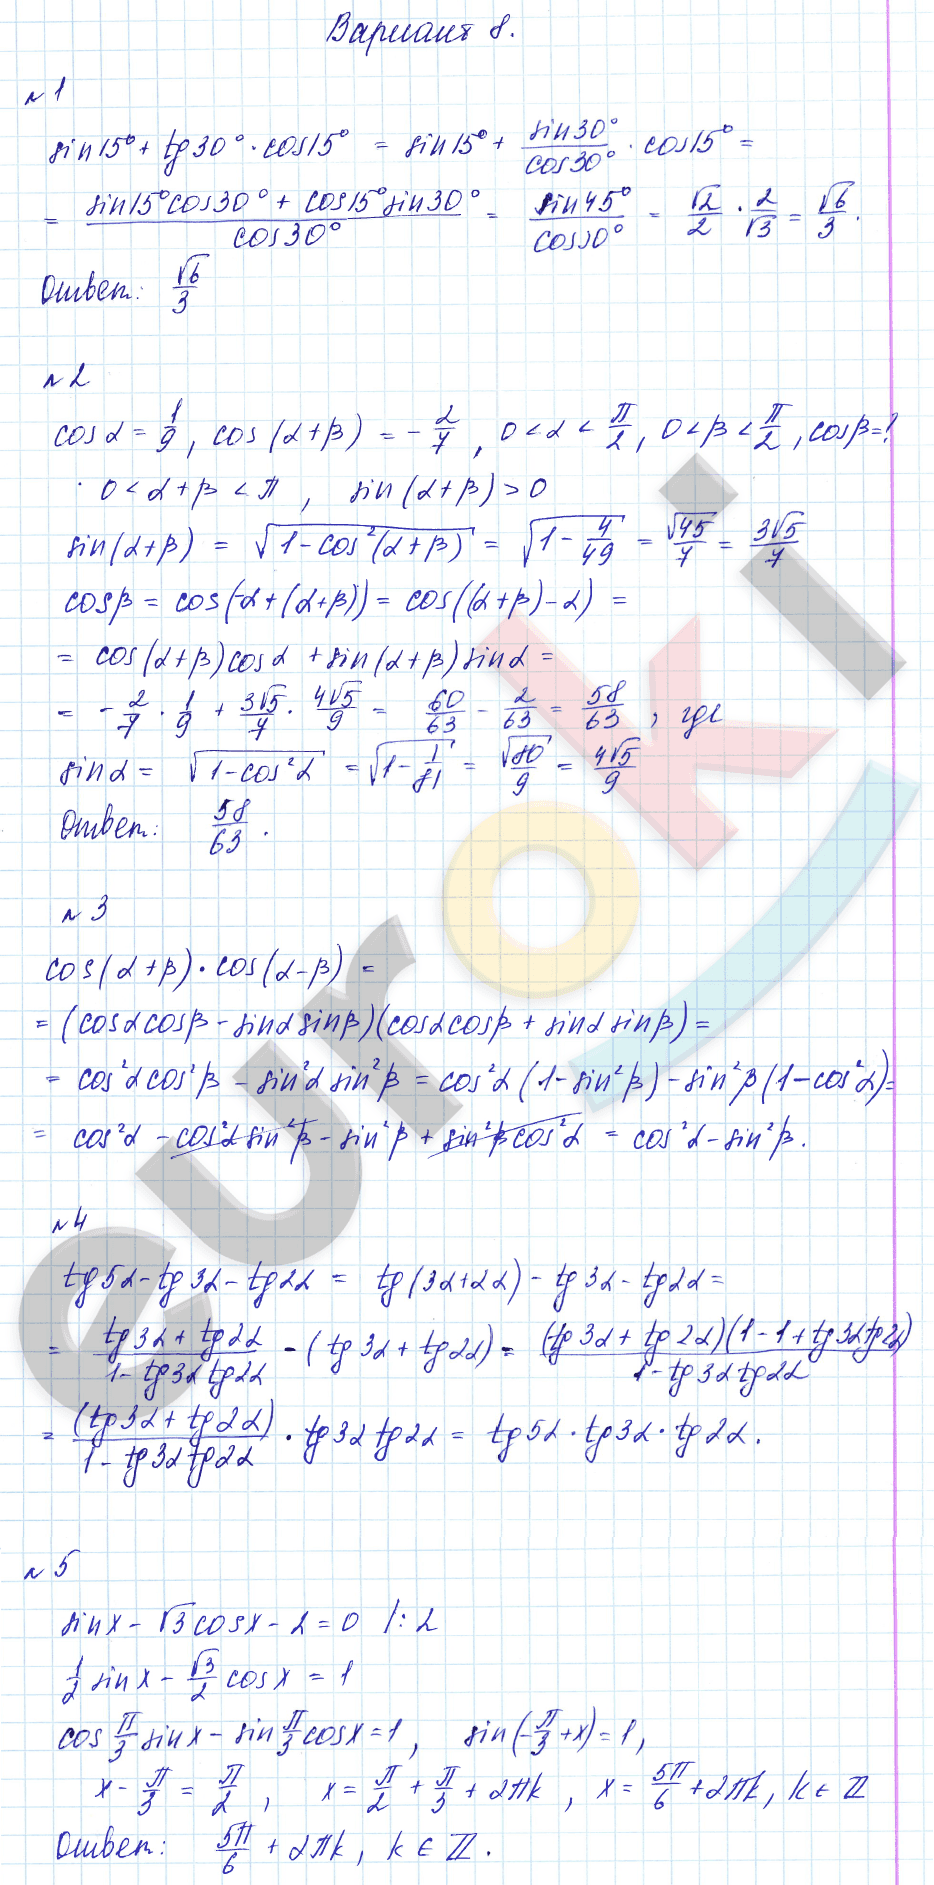 Вариант 8.
№1
sin15° + tg30° · cos15° = sin15° + sin30°/cos30° · cos15° =
= (sin15°cos30° + cos15°sin30°)/cos30° = sin45°/cos30° = √2/2 · 2/√3 = √6/3.
Ответ: √6/3
№2
cosα = 1/9, cos(α+β) = -2/7, 0<α<π/2, 0<β<π/2, cosβ=?
0<α+β<π, sin(α+β)>0
sin(α+β) = √(1-cos²(α+β)) = √(1-4/49) = √45/7 = 3√5/7
cosβ = cos(-α+(α+β)) = cos((α+β)-α) =
= cos(α+β)cosα + sin(α+β)sinα =
= -2/7 · 1/9 + 3√5/7 · 4√5/9 = 60/63 - 2/63 = 58/63, где
sinα = √(1-cos²α) = √(1-1/81) = √80/9 = 4√5/9
Ответ: 58/63.
№3
cos(α+β)·cos(α-β) =
= (cosαcosβ - sinαsinβ)(cosαcosβ + sinαsinβ) =
= cos²αcos²β - sin²αsin²β = cos²α(1-sin²β) - sin²β(1-cos²α) =
= cos²α - cos²αsin²β - sin²β + sin²βcos²α = cos²α - sin²β.
№4
tg5α - tg3α - tg2α = tg(3α+2α) - tg3α - tg2α =
= (tg3α + tg2α)/(1-tg3αtg2α) - (tg3α + tg2α) = (tg3α + tg2α)(1-1+tg3αtg2α)/(1-tg3αtg2α)
= (tg3α + tg2α)/(1-tg3αtg2α) · tg3αtg2α = tg5α · tg3α · tg2α.
№5
sinx - √3cosx - 2 = 0 /:2
1/2 sinx - √3/2 cosx = 1
cos π/3 sinx - sin π/3 cosx = 1, sin(-π/3+x) = 1,
x - π/3 = π/2, x = π/2 + π/3 + 2πk, x = 5π/6 + 2πk, k∈Z
Ответ: 5π/6 + 2πk, k∈Z.
euroki